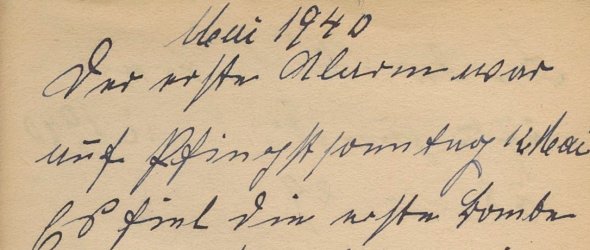 Mai 1940
Der erste Alarm war
auf Pfingstsonntag 12 Mai
Es fiel die erste Bombe